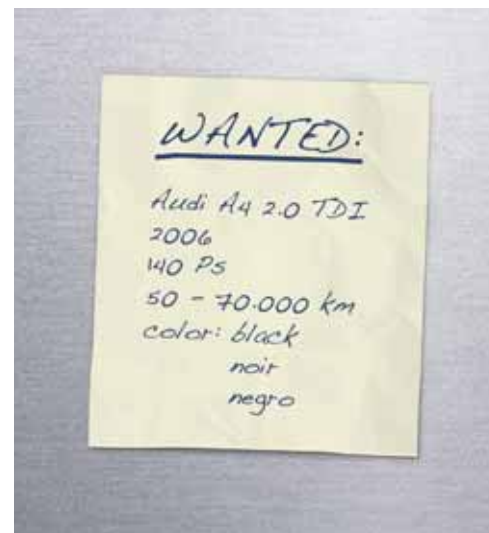 WANTED:
Audi A4 2.0 TDI
2006
140 PS
50 - 70.000 km
color: black
noir
negro